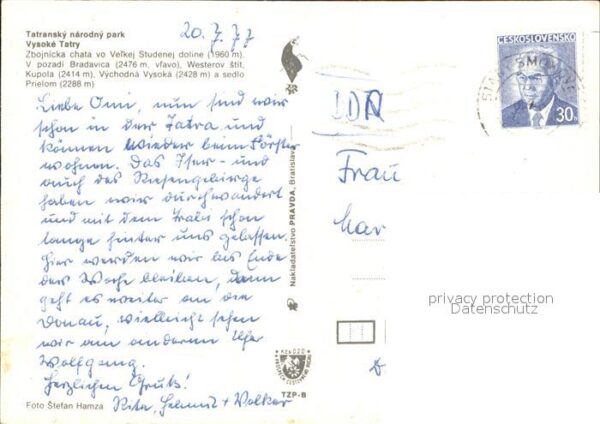 Tatranský národný park
Vysoké Tatry
Zbojnícka chata vo Veľkej Studenej doline (1960 m).
V pozadí Bradavica (2476 m, vľavo), Westerov štít,
Kupola (2414 m), Východná Vysoká (2428 m) a sedlo
Prielom (2288 m)
20.7.77
Liebe Omi, nun sind wir
schon in der Tatra und
können wieder beim Förster
wohnen. Das Iser- und
auch das Riesengebirge
haben wir durchwandert
und mit dem Trabi schon
lange hinter uns gelassen.
Hier werden wir bis Ende
der Woche bleiben, dann
geht es weiter an die
Donau, vielleicht sehen
wir am anderen Ufer
Wolfgang.
Herzlichen Gruß!
Rita, Helmut + Volker
Foto Štefan Hamza
Nakladateľstvo PRAVDA, Bratislava
TZP-8
ČESKOSLOVENSKO
30h
DDR
Frau
Mar
privacy protection
Datenschutz